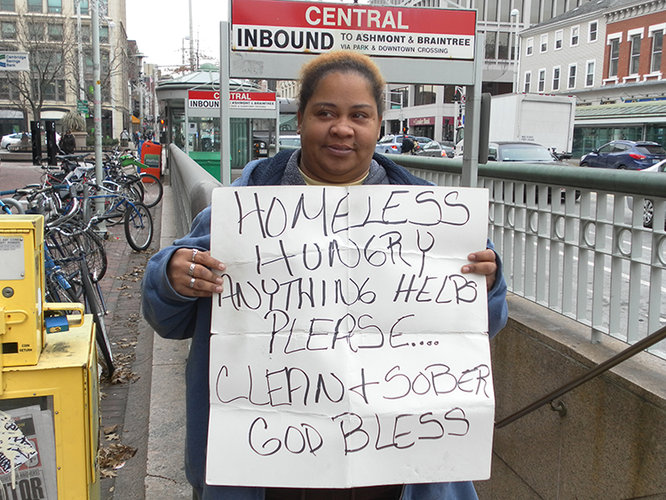 CENTRAL
INBOUND TO ASHMONT & BRAINTREE
VIA PARK & DOWNTOWN CROSSING
CENTRAL
INBOUND TO ASHMONT & BRAINTREE
HOMELESS
HUNGRY
ANYTHING HELPS
PLEASE....
CLEAN + SOBER
GOD BLESS
COIN RETURN